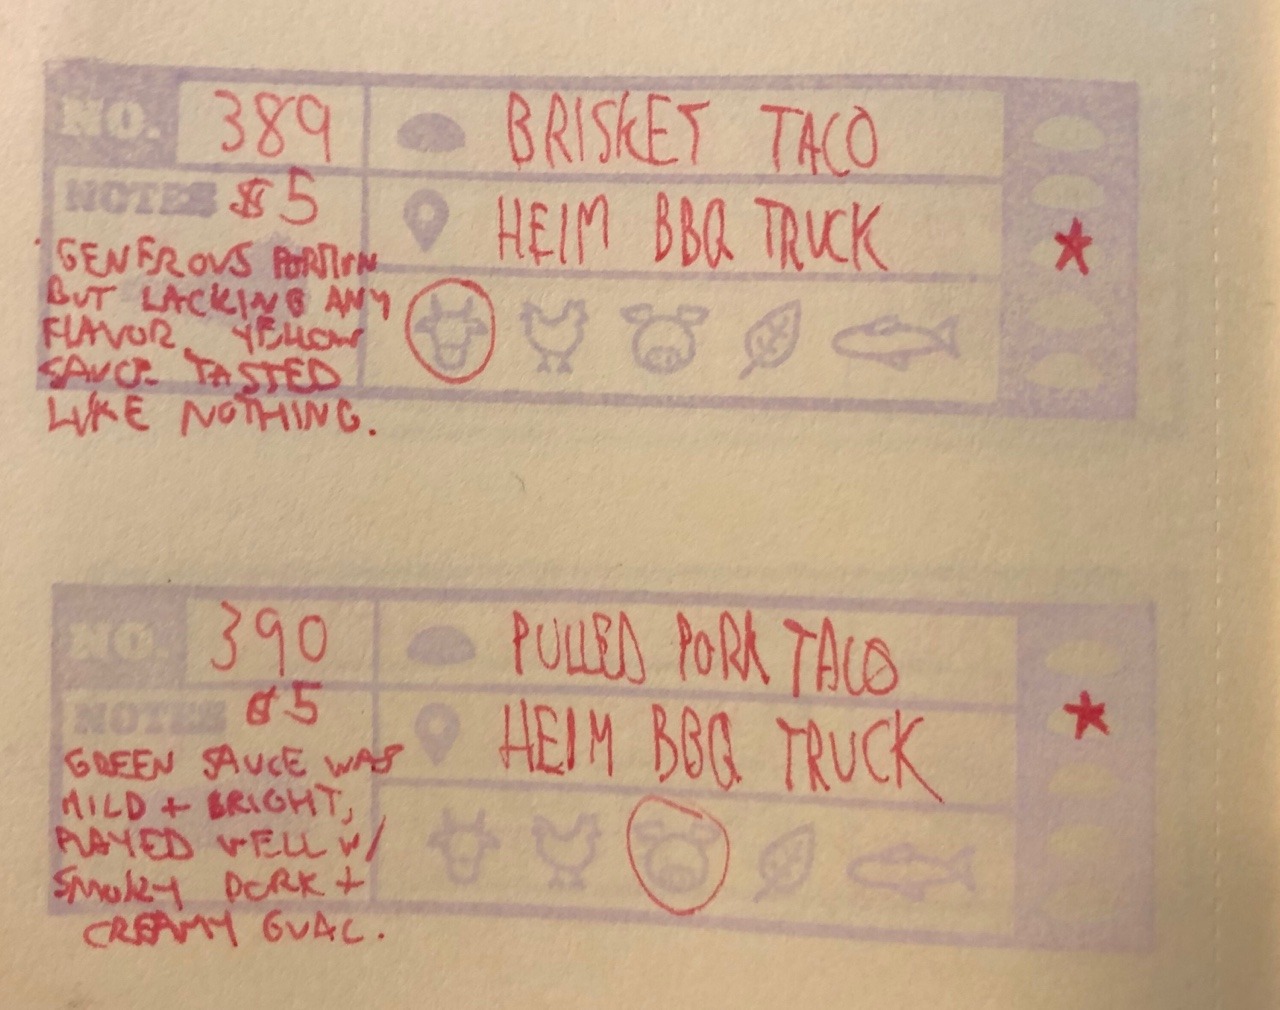 NO. 389
BRISKET TACO
NOTES $5
HEIM BBQ TRUCK
GENEROUS PORTION
BUT LACKING ANY
FLAVOR. YELLOW
SAUCE TASTED
LIKE NOTHING.
NO. 390
PULLED PORK TACO
NOTES $5
HEIM BBQ TRUCK
GREEN SAUCE WAS
MILD + BRIGHT,
PLAYED WELL W/
SMOKY PORK +
CREAMY GUAC.